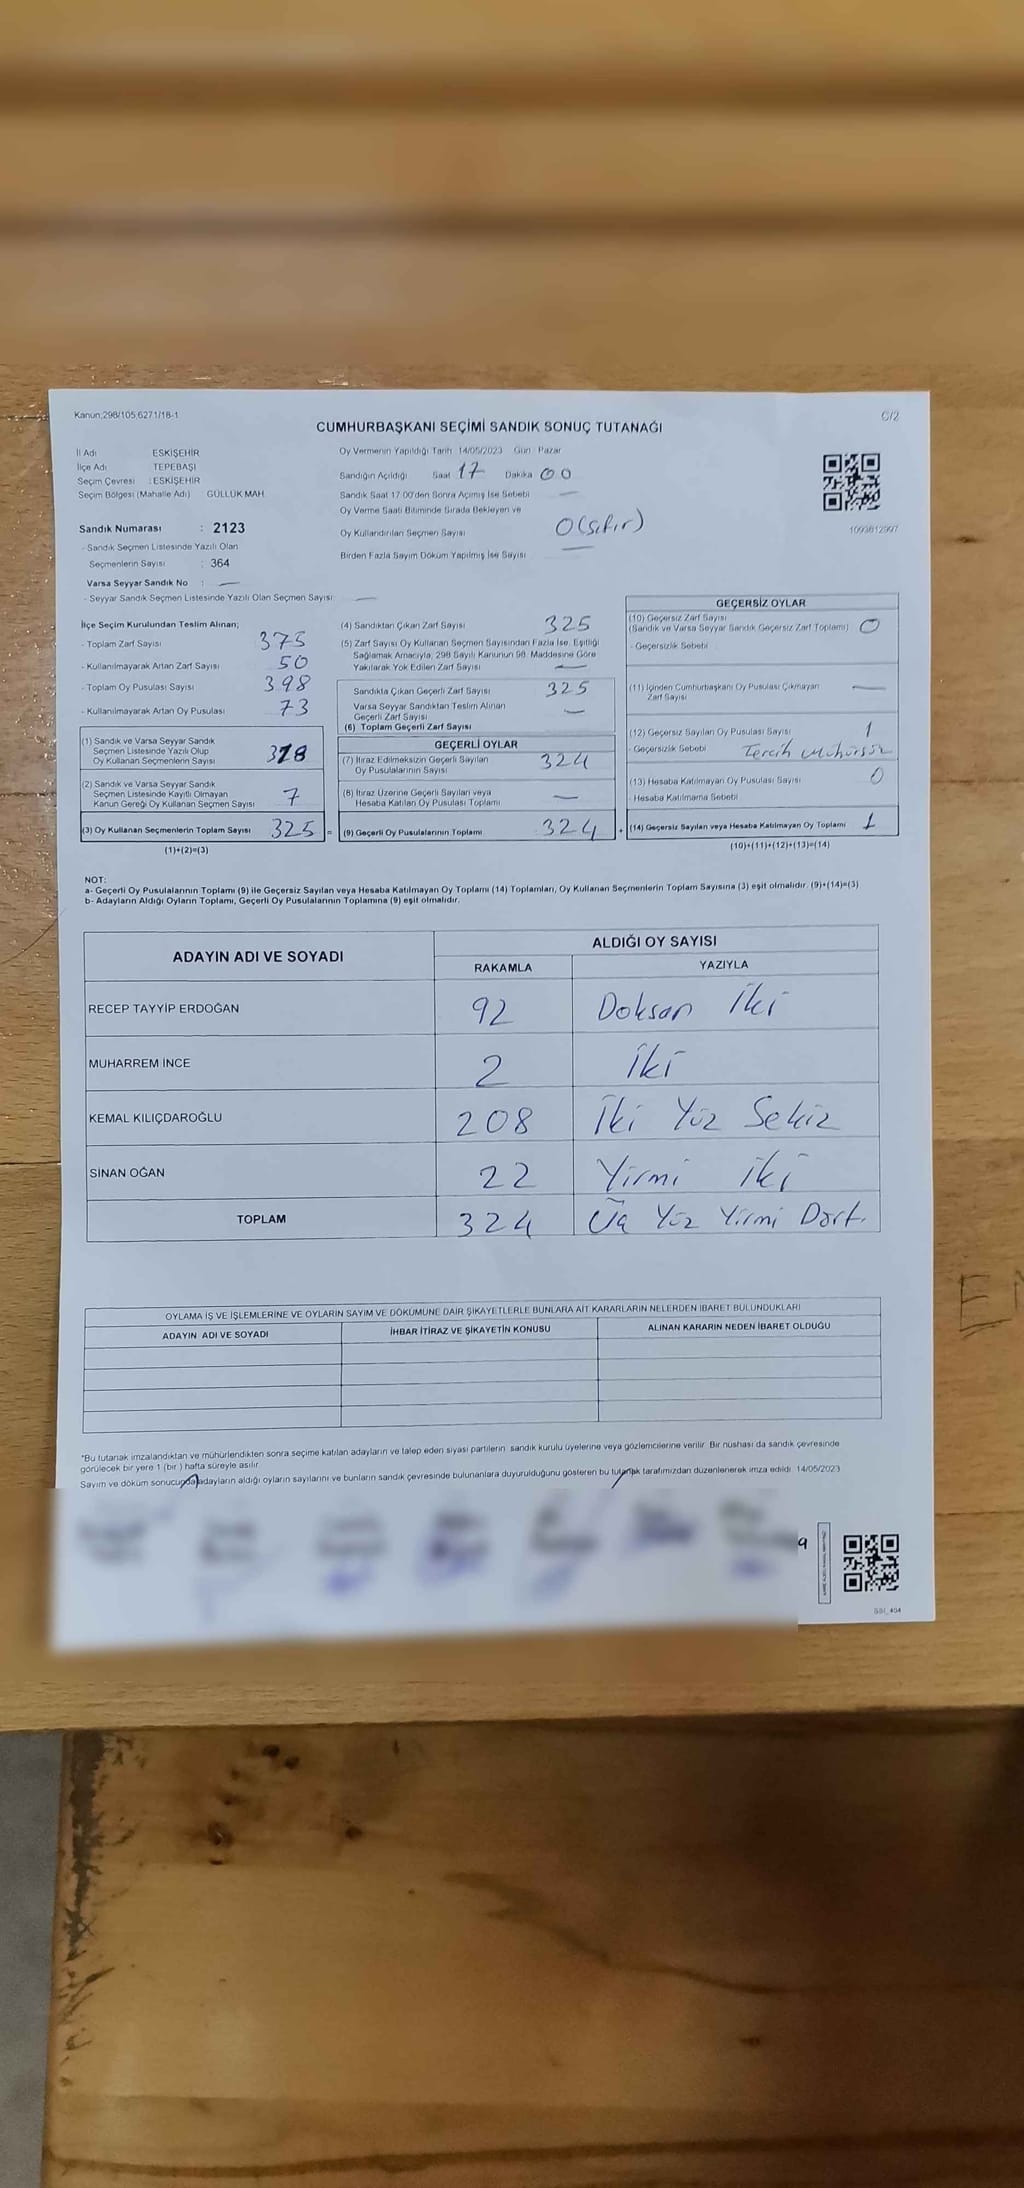 Kanun;298/105,6271/18-1
C/2
CUMHURBAŞKANI SEÇİMİ SANDIK SONUÇ TUTANAĞI
İl Adı ESKİŞEHİR
İlçe Adı TEPEBAŞI
Seçim Çevresi : ESKİŞEHİR
Seçim Bölgesi (Mahalle Adı) GÜLLÜK MAH.
Sandık Numarası : 2123
- Sandık Seçmen Listesinde Yazılı Olan
Seçmenlerin Sayısı : 364
Varsa Seyyar Sandık No : —
- Seyyar Sandık Seçmen Listesinde Yazılı Olan Seçmen Sayısı: —
Oy Vermenin Yapıldığı Tarih 14/05/2023 Gün : Pazar
Sandığın Açıldığı Saat 17 Dakika 00
Sandık Saat 17:00'den Sonra Açımış İse Sebebi —
Oy Verme Saati Bitiminde Sırada Bekleyen ve
Oy Kullandırılan Seçmen Sayısı 0 (Sıfır)
Birden Fazla Sayım Döküm Yapılmış İse Sayısı —
1093812997
İlçe Seçim Kurulundan Teslim Alınan;
- Toplam Zarf Sayısı 375
- Kullanılmayarak Artan Zarf Sayısı 50
- Toplam Oy Pusulası Sayısı 398
- Kullanılmayarak Artan Oy Pusulası 73
(1) Sandık ve Varsa Seyyar Sandık
Seçmen Listesinde Yazılı Olup
Oy Kullanan Seçmenlerin Sayısı 318
(2) Sandık ve Varsa Seyyar Sandık
Seçmen Listesinde Kayıtlı Olmayan
Kanun Gereği Oy Kullanan Seçmen Sayısı 7
(3) Oy Kullanan Seçmenlerin Toplam Sayısı 325 =
(1)+(2)=(3)
(4) Sandıktan Çıkan Zarf Sayısı 325
(5) Zarf Sayısı Oy Kullanan Seçmen Sayısından Fazla İse, Eşitliği
Sağlamak Amacıyla, 298 Sayılı Kanunun 98. Maddesine Göre
Yakılarak Yok Edilen Zarf Sayısı —
Sandıkta Çıkan Geçerli Zarf Sayısı 325
Varsa Seyyar Sandıktan Teslim Alınan
Geçerli Zarf Sayısı —
(6) Toplam Geçerli Zarf Sayısı
GEÇERLİ OYLAR
(7) İtiraz Edilmeksizin Geçerli Sayılan
Oy Pusulalarının Sayısı 324
(8) İtiraz Üzerine Geçerli Sayılan veya
Hesaba Katılan Oy Pusulası Toplamı —
(9) Geçerli Oy Pusulalarının Toplamı 324 +
GEÇERSİZ OYLAR
(10) Geçersiz Zarf Sayısı
(Sandık ve Varsa Seyyar Sandık Geçersiz Zarf Toplamı) 0
- Geçersizlik Sebebi
(11) İçinden Cumhurbaşkanı Oy Pusulası Çıkmayan
Zarf Sayısı —
(12) Geçersiz Sayılan Oy Pusulası Sayısı 1
- Geçersizlik Sebebi Tercih mühürsüz
(13) Hesaba Katılmayan Oy Pusulası Sayısı 0
- Hesaba Katılmama Sebebi
(14) Geçersiz Sayılan veya Hesaba Katılmayan Oy Toplamı 1
(10)+(11)+(12)+(13)=(14)
NOT:
a- Geçerli Oy Pusulalarının Toplamı (9) ile Geçersiz Sayılan veya Hesaba Katılmayan Oy Toplamı (14) Toplamları, Oy Kullanan Seçmenlerin Toplam Sayısına (3) eşit olmalıdır. (9)+(14)=(3)
b- Adayların Aldığı Oyların Toplamı, Geçerli Oy Pusulalarının Toplamına (9) eşit olmalıdır.
ADAYIN ADI VE SOYADI
ALDIĞI OY SAYISI
RAKAMLA YAZIYLA
RECEP TAYYİP ERDOĞAN 92 Doksan İki
MUHARREM İNCE 2 İki
KEMAL KILIÇDAROĞLU 208 İki Yüz Sekiz
SİNAN OĞAN 22 Yirmi İki
TOPLAM 324 Üç Yüz Yirmi Dört.
OYLAMA İŞ VE İŞLEMLERİNE VE OYLARIN SAYIM VE DÖKÜMÜNE DAİR ŞİKAYETLERLE BUNLARA AİT KARARLARIN NELERDEN İBARET BULUNDUKLARI
ADAYIN ADI VE SOYADI
İHBAR İTİRAZ VE ŞİKAYETİN KONUSU
ALINAN KARARIN NEDEN İBARET OLDUĞU
*Bu tutanak imzalandıktan ve mühürlendikten sonra seçime katılan adayların ve talep eden siyasi partilerin sandık kurulu üyelerine veya gözlemcilerine verilir. Bir nüshası da sandık çevresinde
görülecek bir yere 1 (bir ) hafta süreyle asılır.
Sayım ve döküm sonucunda adayların aldığı oyların sayılarını ve bunların sandık çevresinde bulunanlara duyurulduğunu gösteren bu tutanak tarafımızdan düzenlenerek imza edildi. 14/05/2023